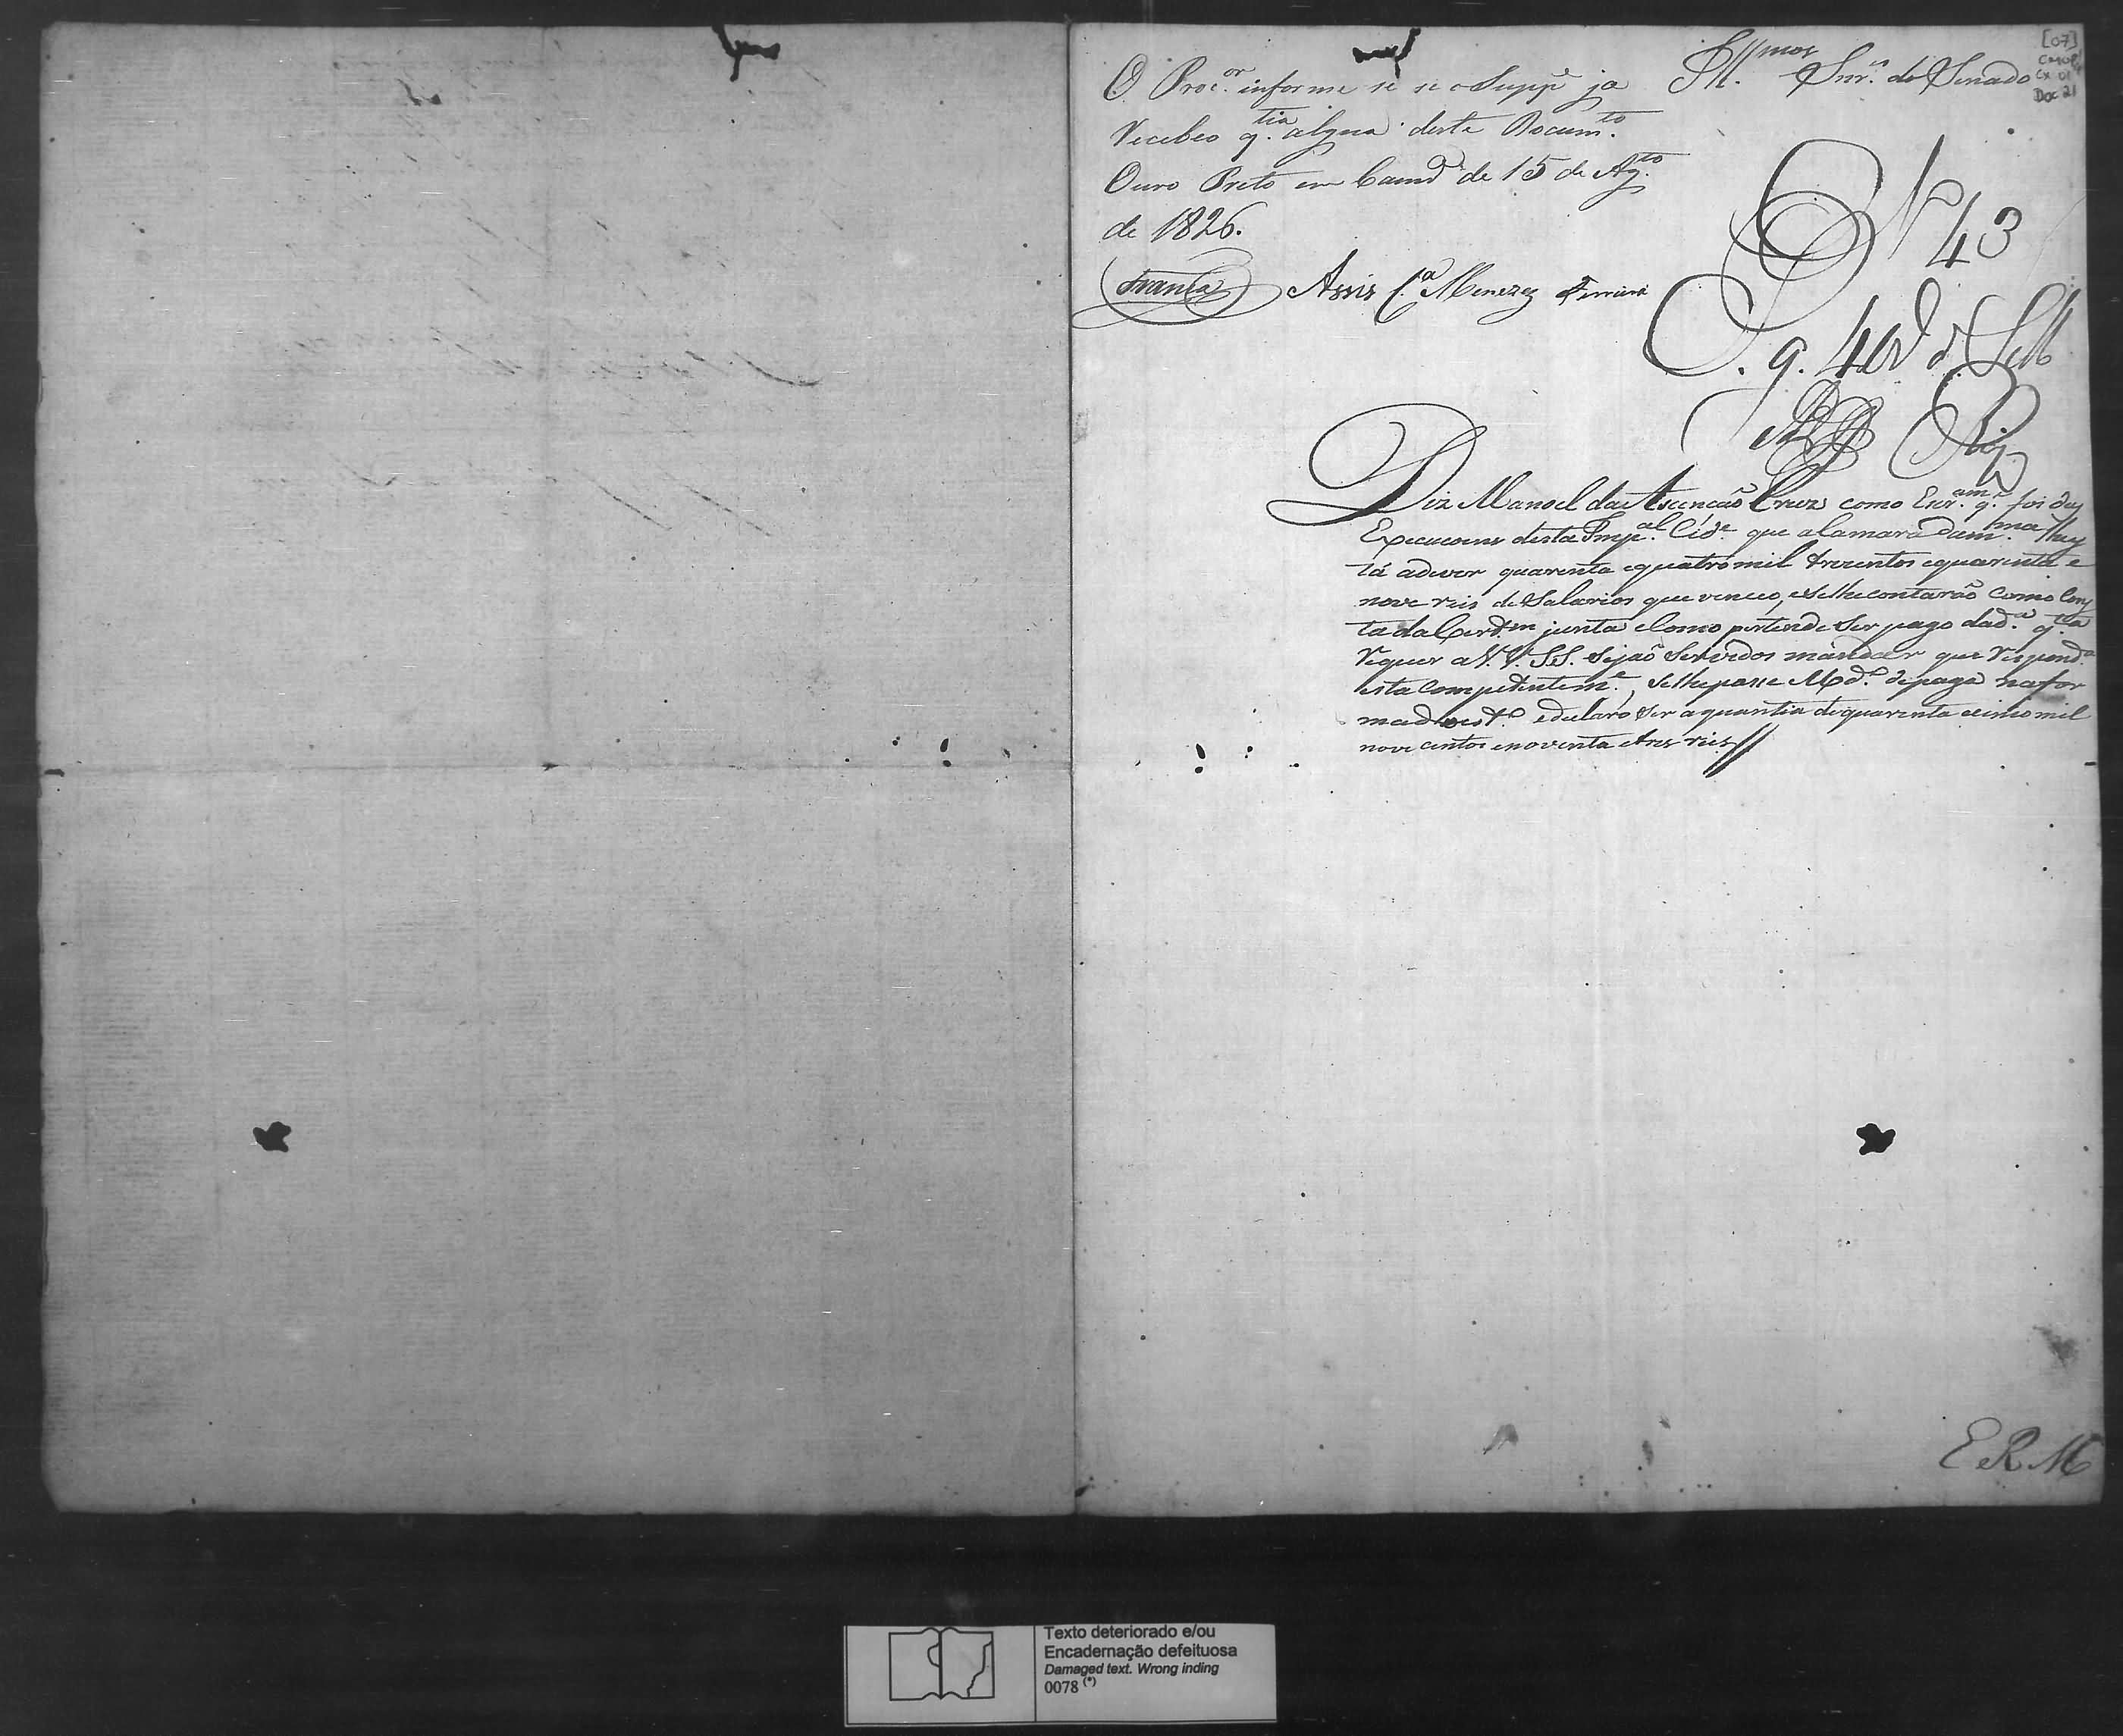 [07]
CMOP
Cx 01
Doc 21
Ill.mos Snr.es do Senado
O Proc.or informe se o Supp.e ja
Recebeo q.tia algua deste Docum.to
Ouro Preto em Cam.ra de 15 de Ag.to
de 1826.
Franca Assis C.a Menezes Ferreira
N 43
P. g. 40 d Sello
Diz Manoel da Asencaõ Cruz como Escr.am q.e foi das
Execucoens desta Imp.al Cid.e que a Camara da m.ma lhe es
tá a dever quarenta e quatro mil trezentos e quarenta e
nove reis de Salarios que venceo, e se lhe contaraõ como cons
ta da Cert.m junta e Como pertende ser pago da d.a q.tia
Requer a V.V. S.S. sejaõ Servidos mandar que Respond.a
esta Competentem.e, se lhe passe M.d.o de paga na for
ma do est.o e declaro ser a quantia de quarenta e cinco mil
nove centos e noventa e tres reis//
E R M
Texto deteriorado e/ou
Encadernação defeituosa
Damaged text. Wrong inding
0078 (*)